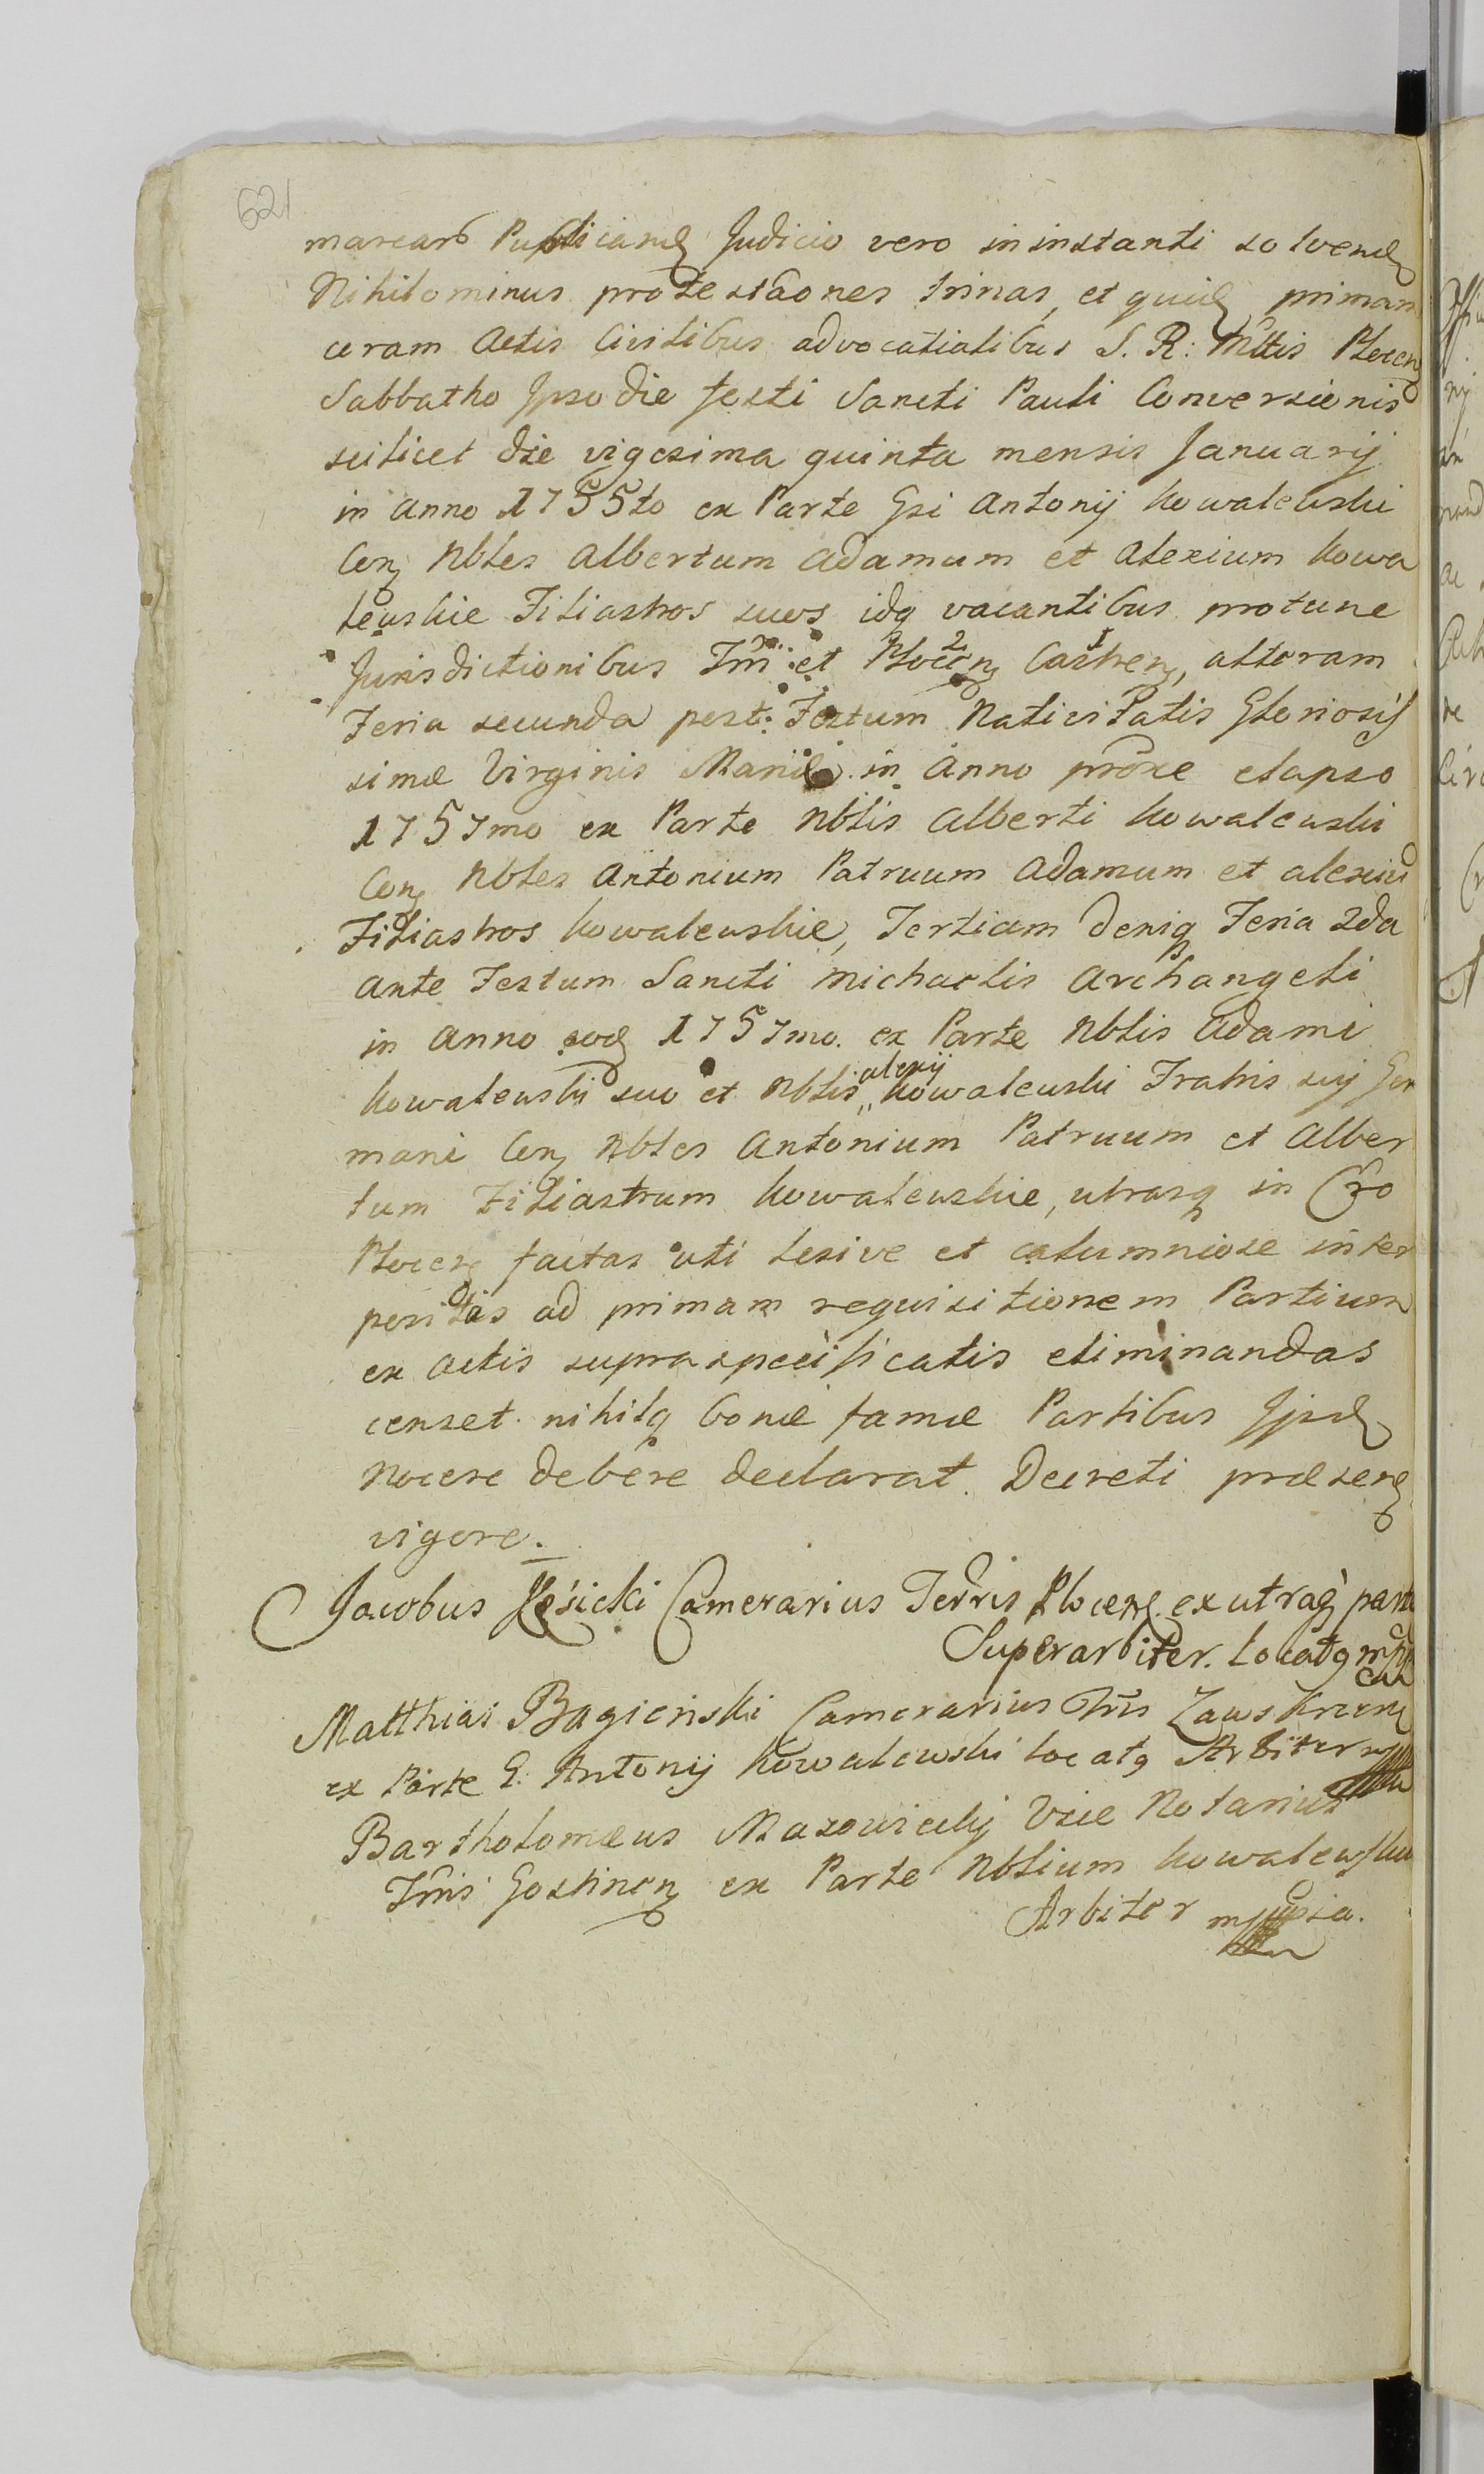 621
marcarū Puplicand Judicio vero in instanti solvend
Nihilominus protestaōnes trinas, et quid primam
ceram Actis Civilibus advocatialibus S. R: Mttis Plocen
Sabbatho Ipso die festi Sancti Pauli Conversionis
scilicet die vigesima quinta mensis Januarij
in Anno 1755to ex Parte Gsi Antonij Kowalewski
Con Nbles Albertum Adamum et Alexium Kowa
lewskie Filiastros suos idq vacantibus protunc
Jurisdictionibus Trrī et 2 Plocen 1 Castren, alteram
Feria secunda post Festum Nativitatis Gloriosis
simæ Virginis Mariæ in Anno proxe elapso
1757mo ex Parte Nblis Alberti Kowalewski
Con Nbles Antonium Patruum Adamum et alexiū
Filiastros Kowalewskie, Tertiam deniq Feria 2da
ante Festum Sancti Michaelis Archangeli
in Anno eod 1757mo. ex Parte Nblis Adami
Kowalewski suo et Nblis alexij Kowalewski Fratris suj Ger
mani Con Nbles Antonium Patruum et Alber
tum Filiastrum Kowalewskie, utrasq in Cro
Plocen factas uti lesive et calumniose inter
positas ad primam requisitionem Partium
ex Actis supraspecificatis eliminandas
censet nihilq bonæ famæ Partibus Ijsd
Nocere debere declarat. Decreti præsen
vigore.
Jacobus Camerarius Terris Plocen. ex utraq parte
Superarbiter. Locatq mpp
Matthias Bagieński Camerarius Tris Zawskrzen
ex Parte G. Antonij Kowalewski locatq Arbiter mpp
Bartholomæus Mazowiecky Vice Notarius
Trris Gostinen ex Parte Nblium Kowalewskie
Arbiter mppia.